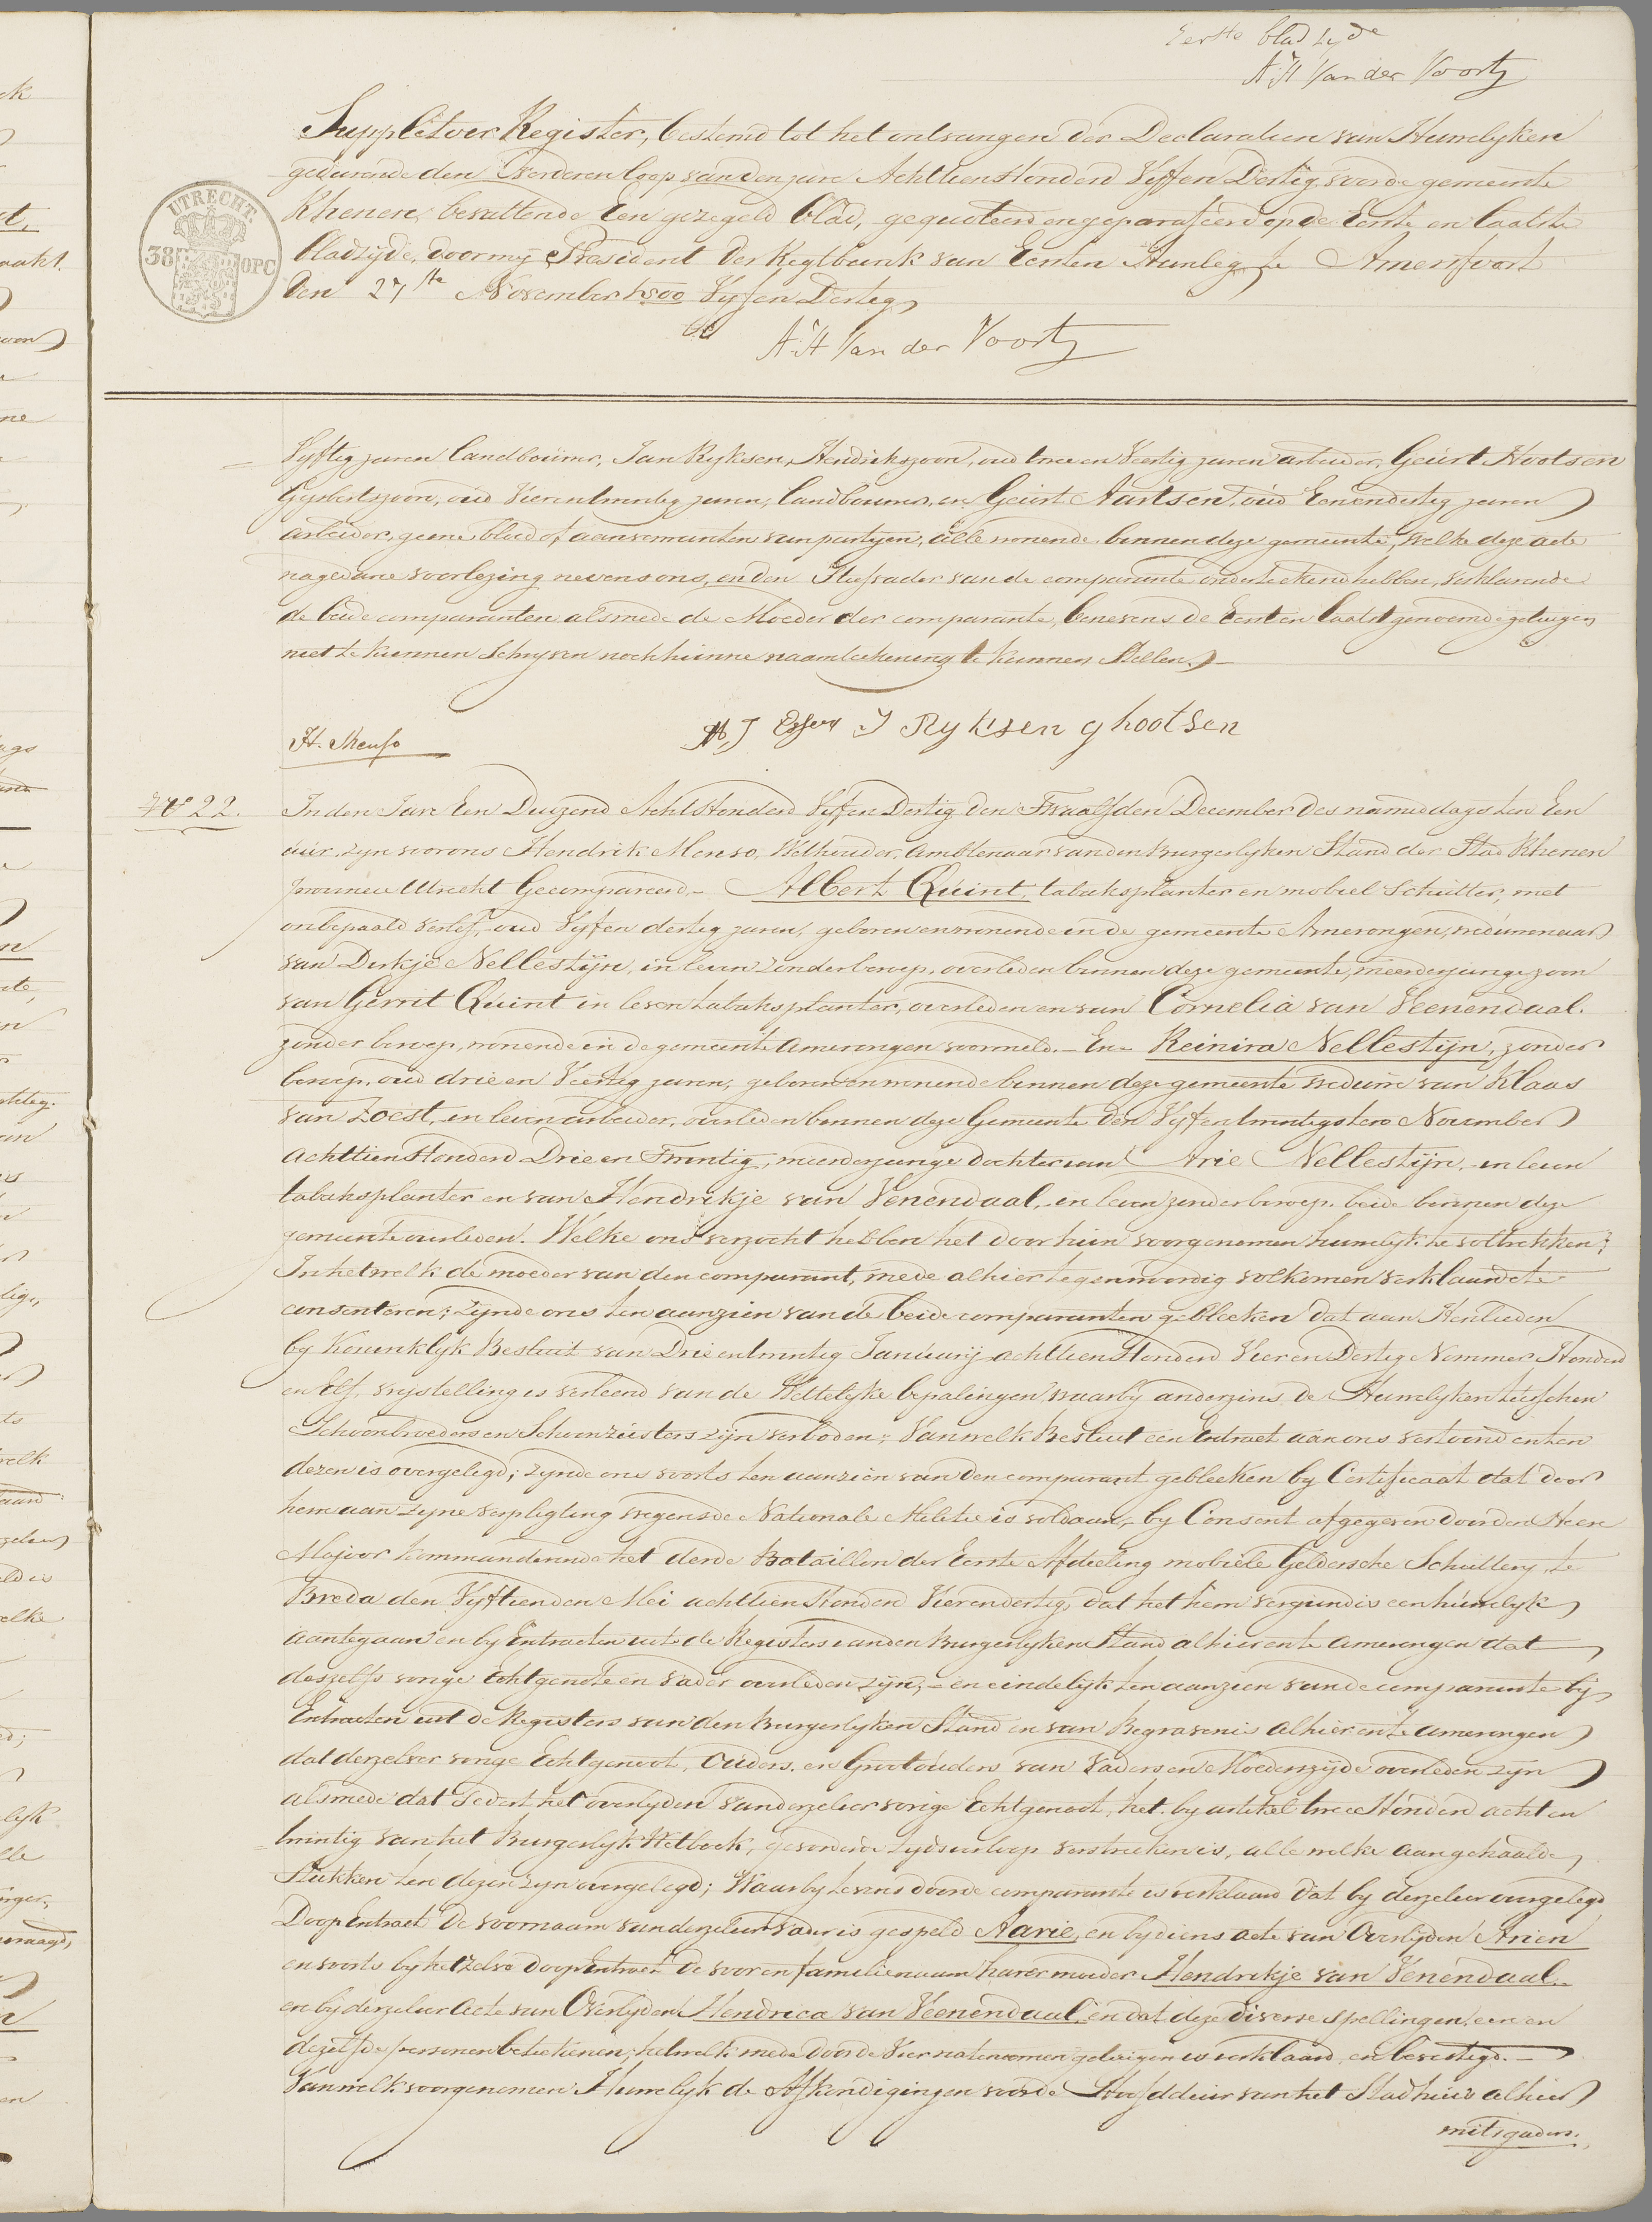 Eerste bladzyde
A: H Van der Voort
Suppletoir Register, bestemd tot het ontvangen der Declaratien van Huwelyken
gedurende den Verderen loop van den jare Achttien Honderd Vyf en Dertig, voor de gemeente
Rhenen, bevattende Een gezegeld blad, gequoteerd en geparafeerd op de Eerste en laatste
bladzijde, door mij President der Regtbank van Eersten Aanleg te Amersfoort
den 27ste November 1800 Vyf en Dertig
A: H Van der Voort
UTRECHT.
38 OPC
Vyftig jaren landbouwer, Jan Ryksen, Hendrikszoon, oud twee en Veertig jaren arbeider, Geurt Hootsen
Gysbertszoon, oud Vier en twintig jaren, landbouwer, en Geurt Aartsen, oud Een en dertig jaren
arbeider, geene bloed of aanverwanten van partyen, alle wonende binnen deze gemeente, welke deze acte
na gedane voorlezing nevens ons, en den Stiefvader van de comparante onderteekend hebben, verklarende
de beide comparanten alsmede de Moeder der comparante, benevens de Eerst en laatst genoemde getuigen
niet te kunnen Schryven noch hunne naamteekening te kunnen Stellen.
H. Menso J Ryksen g hootsen
No 22.
In den Jare Een Duizend Acht Honderd Vyf en Dertig den Twaalfden December des namiddags ten Een
uur, zyn voor ons Hendrik Menso, Wethouder, Ambtenaar van den Burgerlyken Stand der Stad Rhenen
provincie Utrecht Gecompareerd,- Albert Quint, tabaksplanter en mobiel Schutter, met
onbepaald verlof, oud Vyf en dertig jaren, geboren en wonende in de gemeente Amerongen, weduwenaar
van Dirkje Nellestijn, in leven zonder beroep, overleden binnen deze gemeente, meerderjarige zoon
van Gerrit Quint in leven tabaksplanter, overleden en van Cornelia van Veenendaal.
zonder beroep, wonende in de gemeente Amerongen voormeld.- En- Reinira Nellestijn, zonder
beroep, oud drie en Veertig jaren, geboren en wonende binnen deze gemeente weduwe van Klaas
van Zoest, in leven arbeider, overleden binnen deze Gemeente den Vyf en twintigsten November
achttien Honderd Drie en Twintig, meerderjarige dochter van Arie Nellestijn, in leven
tabaksplanter en van Hendrikje van Venendaal, in leven zonder beroep, beide binnen deze
gemeente overleden. Welke ons verzocht hebben het door hun voorgenomen huwelyk te voltrekken;
In hetwelk de moeder van den comparant, mede alhier tegenwoordig volkomen verklaarde te
consenteren; zynde ons ten aanzien van de beide comparanten gebleeken dat aan Henlieden
by Koninklyk Besluit van Drie en twintig Januarij achttien Honderd Vier en Dertig Nommer Honderd
en Elf, vrystelling is verleend van de Wettelyke bepalingen waarby anderzins de Huwelyken tusschen
Schoonbroeders en Schoonzusters zyn verboden; Van welk Besluit een Extract aan ons vertoond en ten
dezen is overgelegd; zynde ons voorts ten aanzien van den comparant gebleeken by Certificaat dat door
hem aan zyne verpligting wegens de Nationale Militie is voldaan, by Consent afgegeven door den Heer
Majoor kommanderende het derde Bataillon der Eerste Afdeeling mobiele Geldersche Schuttery, te
Breda den Vyftienden Mei achttien Honderd Vier en dertig, dat het hem vergund is een huwelyk
aantegaan en by Extracten uit de Registers van den Burgerlyken Stand alhier en te Amerongen dat
deszelfs vorige Echtgenote en vader overleden zyn,- en eindelyk ten aanzien van de comparante by
Extracten uit de Registers van den Burgerlyken Stand en van Begravenis alhier en te Amerongen
dat derzelver vorige Echtgenoot, Ouders, en Grootouders van Vaders en Moederzyde overleden zyn
alsmede dat Sedert het overlyden van derzelver vorige Echtgenoot, het by artikel twee Honderd acht en
twintig van het Burgerlyk Wetboek, gevorderde tydsverloop verstreken is, alle welke aangehaalde
Stukken ten dezen zyn overgelegd; Waarby tevens door de comparante is verklaard dat by derzelver overgelegd
Doop Extract de voornaam van derzelver vader is gespeld Aarie, en by diens acte van Overlyden Arien
en voorts by hetzelve doop Extract de voor en familienaam harer moeder Hendrikje van Venendaal
en by derzelver Acte van Overlyden Hendrica van Veenendaal, en dat deze diverse spellingen, een en
dezelfde personen beteekenen, hetwelk mede door de Vier natenoemen getuigen is verklaard en bevestigd.-
Van welk voorgenomen Huwelyk de Afkondigingen voor de Hoofddeur van het Stadhuis alhier
mitsgaders.